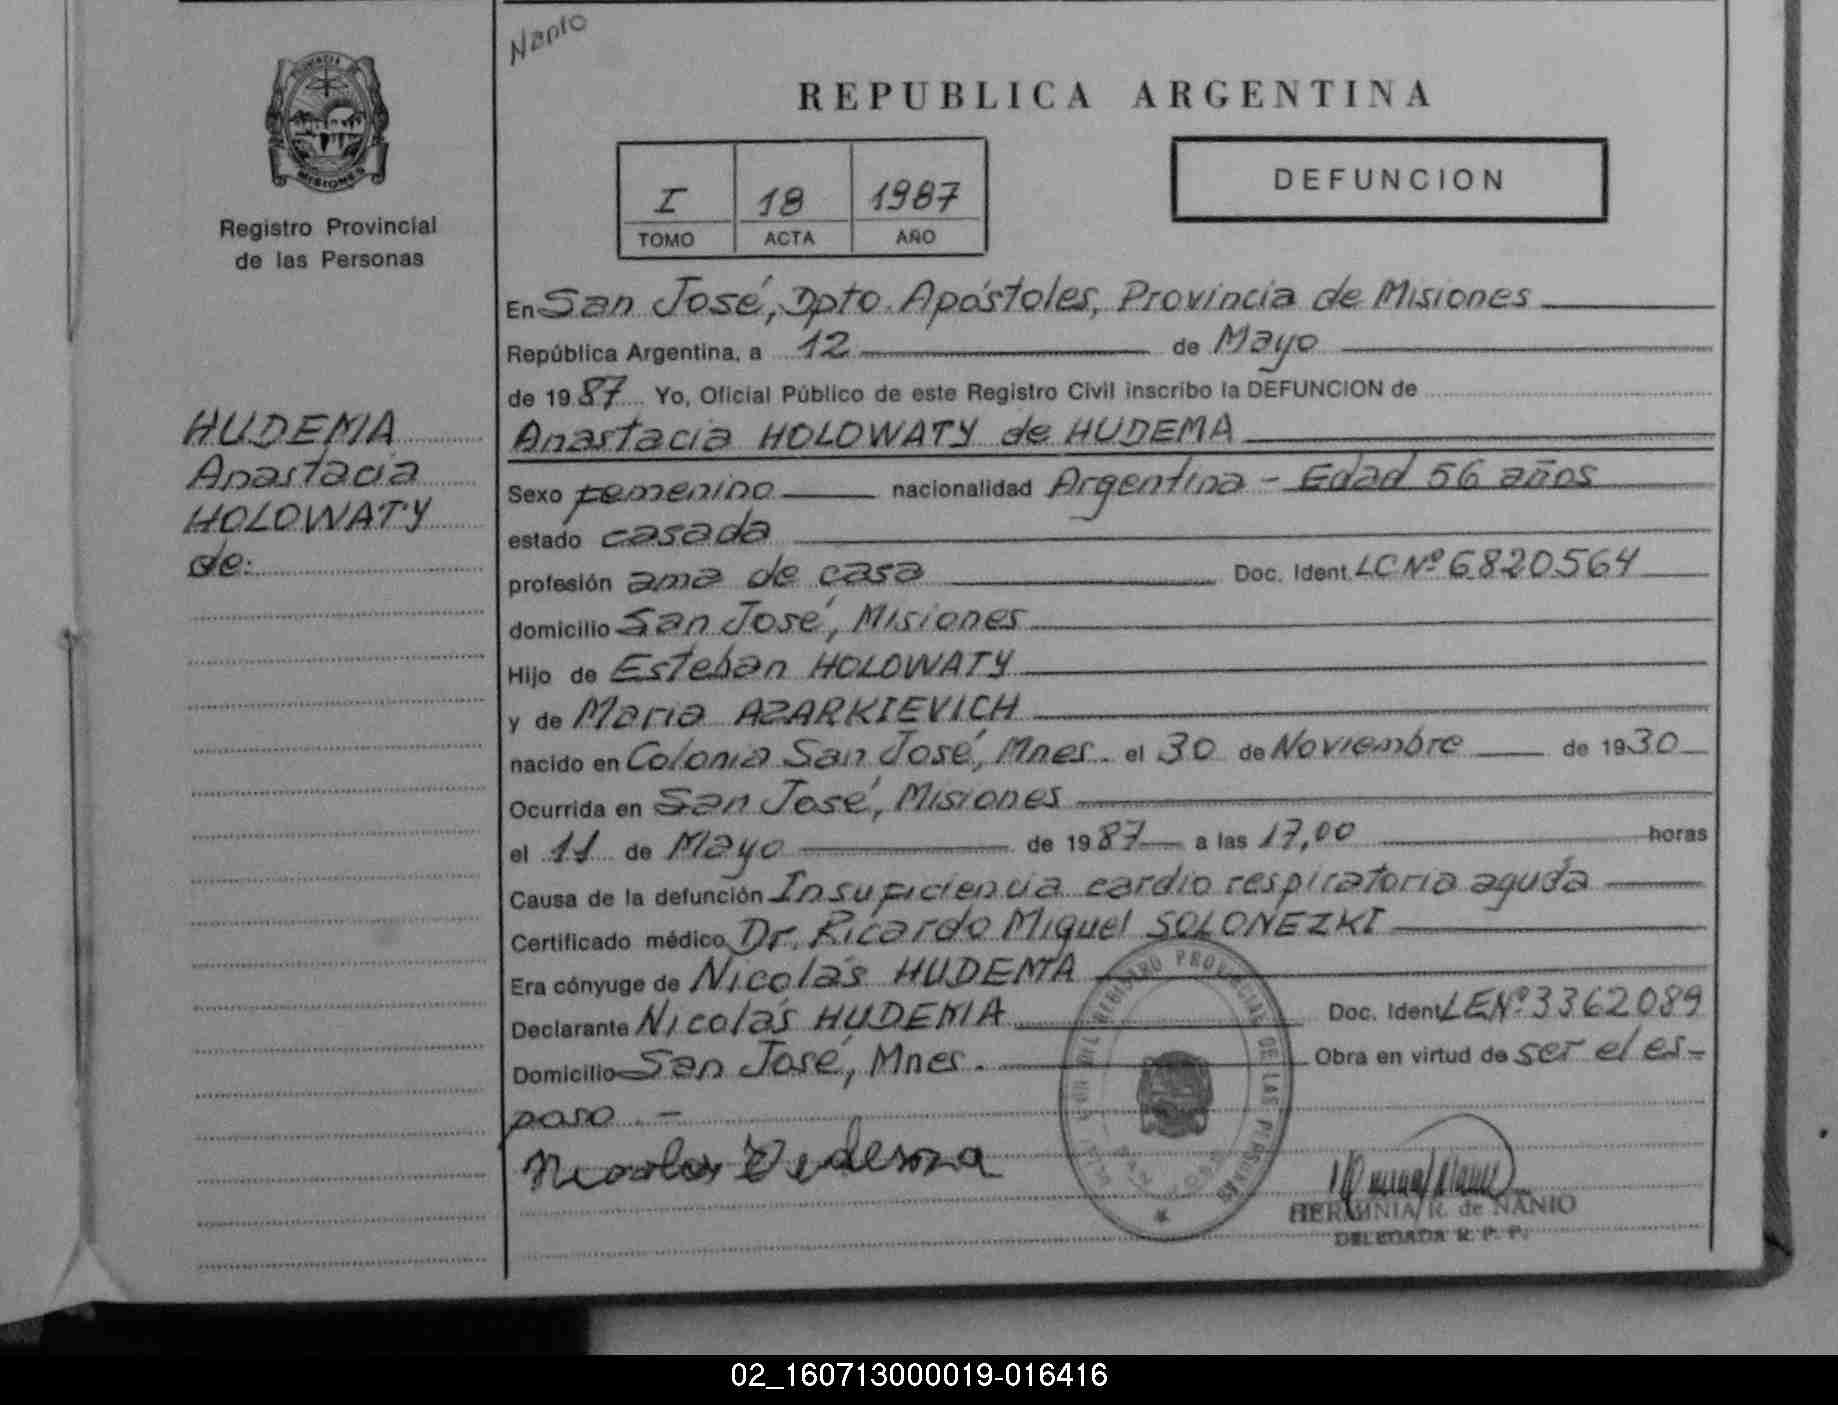 Nanio
PROVINCIA DE
MISIONES
Registro Provincial
de las Personas
HUDEMA
Anastacia
HOLOWATY
de:
REPUBLICA ARGENTINA
I 18 1987
TOMO ACTA AÑO
DEFUNCION
En San José, Dpto. Apóstoles, Provincia de Misiones
República Argentina, a 12 de Mayo
de 1987 Yo, Oficial Público de este Registro Civil inscribo la DEFUNCION de
Anastacia HOLOWATY de HUDEMA
Sexo femenino nacionalidad Argentina - Edad 56 años
estado casada
profesión ama de casa Doc. Ident. LC Nº 6820564
domicilio San José, Misiones
Hijo de Esteban HOLOWATY
y de Maria AZARKIEVICH
nacido en Colonia San José, Mnes. el 30 de Noviembre de 1930
Ocurrida en San José, Misiones
el 11 de Mayo de 1987 a las 17,00 horas
Causa de la defunción Insuficiencia cardio respiratoria aguda
Certificado médico Dr. Ricardo Miguel SOLONEZKI
Era cónyuge de Nicolás HUDEMA
Declarante Nicolás HUDEMA Doc. Ident. LE Nº 3362089
Domicilio San José, Mnes. Obra en virtud de ser el es-
poso.-
REGISTRO PROVINCIAL DE LAS PERSONAS
SAN JOSE
HERMINIA R. de NANIO
DELEGADA R. P. P.
02_160713000019-016416